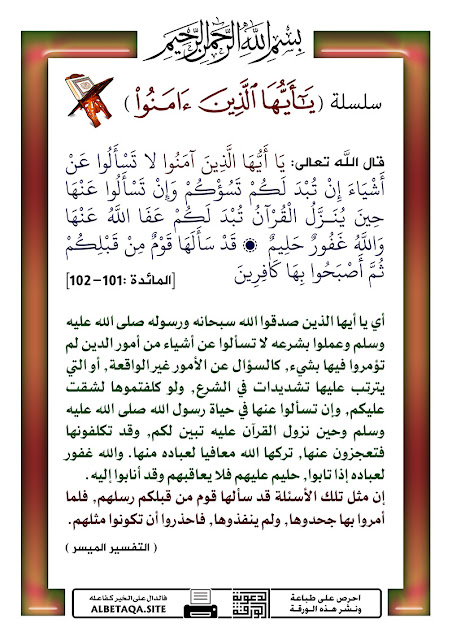 بسم الله الرحمن الرحيم
سلسلة ( يَٰٓأَيُّهَا ٱلَّذِينَ ءَامَنُوا۟ )
قال الله تعالى: يَا أَيُّهَا الَّذِينَ آمَنُوا لا تَسْأَلُوا عَنْ
أَشْيَاءَ إِنْ تُبْدَ لَكُمْ تَسُؤْكُمْ وَإِنْ تَسْأَلُوا عَنْهَا
حِينَ يُنَزَّلُ الْقُرْآنُ تُبْدَ لَكُمْ عَفَا اللَّهُ عَنْهَا
وَاللَّهُ غَفُورٌ حَلِيمٌ ۞ قَدْ سَأَلَهَا قَوْمٌ مِنْ قَبْلِكُمْ
ثُمَّ أَصْبَحُوا بِهَا كَافِرِينَ [المائدة :101-102]
أي يا أيها الذين صدقوا الله سبحانه ورسوله صلى الله عليه
وسلم وعملوا بشرعه لا تسألوا عن أشياء من أمور الدين لم
تؤمروا فيها بشيء, كالسؤال عن الأمور غير الواقعة, أو التي
يترتب عليها تشديدات في الشرع, ولو كلفتموها لشقت
عليكم, وإن تسألوا عنها في حياة رسول الله صلى الله عليه
وسلم وحين نزول القرآن عليه تبين لكم, وقد تكلفونها
فتعجزون عنها, تركها الله معافيا لعباده منها. والله غفور
لعباده إذا تابوا, حليم عليهم فلا يعاقبهم وقد أنابوا إليه.
إن مثل تلك الأسئلة قد سألها قوم من قبلكم رسلهم, فلما
أمروا بها جحدوها, ولم ينفذوها, فاحذروا أن تكونوا مثلهم.
( التفسير الميسر )
احرص على طباعة
ونشر هذه الورقة
لدعوية
لورقة
فالدال على الخير كفاعله
ALBETAQA.SITE